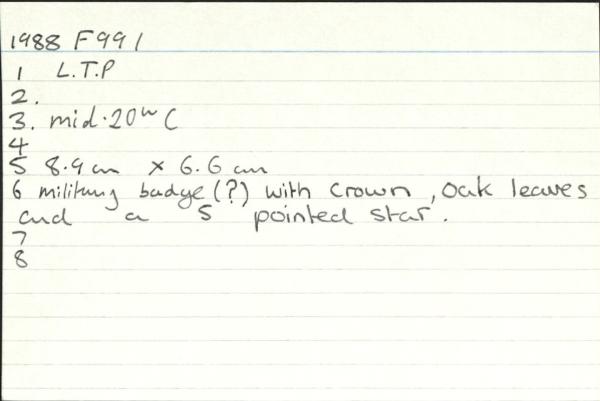 1988 F991
1 L.T.P
2.
3. mid.20th C
4
5 8.9 cm x 6.6 cm
6 military badge (?) with crown, oak leaves
and a 5 pointed star.
7
8